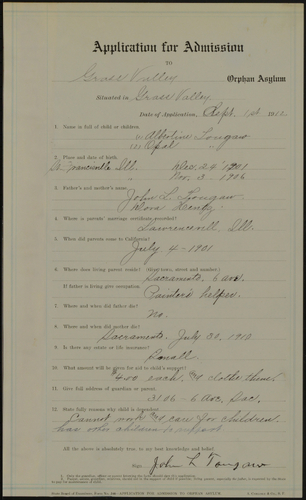 Application for Admission
TO
Grass Valley Orphan Asylum
Situated in Grass Valley
Date of Application, Sept. 1st 1910
1. Name in full of child or children.
(1) Albertine Tongaw
(2) Opal "
2. Place and date of birth.
Ill. Dec. 24 1901
" Nov. 3 1906
3. Father's and mother's name.
John L. Tongaw
4. Where is parents' marriage certificate recorded?
Lawrenceville Ill.
5. When did parents come to California?
July 4 - 1901
6. Where does living parent reside? (Give town, street and number)
Sacramento, 6 ave.
If father is living give occupation.
Painter's helper.
7. Where and when did father die?
No.
8. Where and when did mother die?
Sacramento, July 30, 1910
9. Is there any estate or life insurance?
10. What amount will be given for aid to child's support?
$4.00 each. & clothe them.
11. Give full address of guardian or parent.
3106 - 6 Ave. Sac.
12. State fully reasons why child is dependent.
Cannot work & care for children
has other children to support
All the above is absolutely true, to my best knowledge and belief.
Sign, John L Tongaw